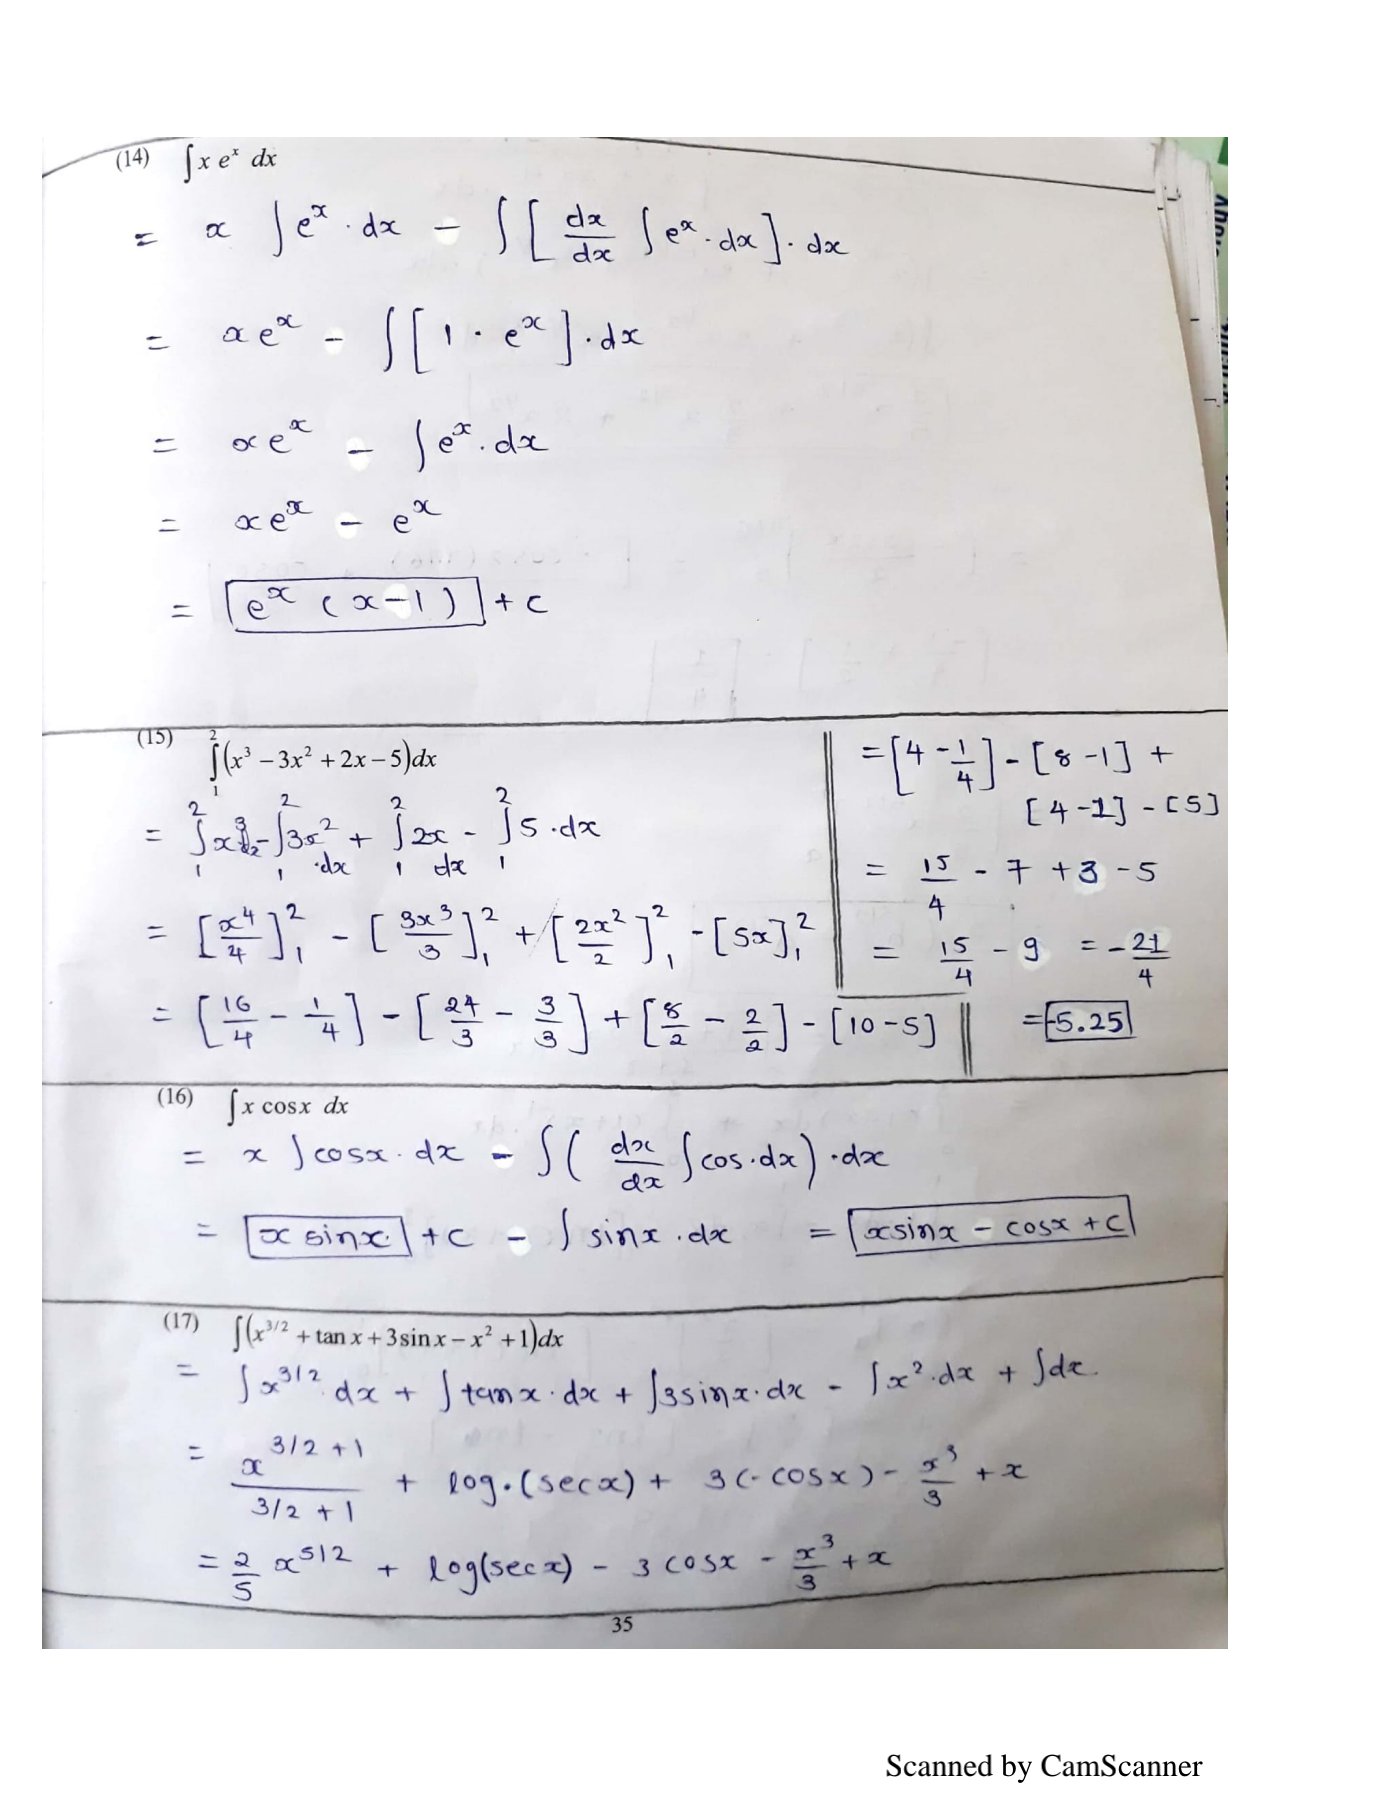 (14) ∫x eˣ dx
= x ∫eˣ · dx − ∫[dx/dx ∫eˣ · dx] · dx
= xeˣ − ∫[1 · eˣ] · dx
= xeˣ − ∫eˣ . dx
= xeˣ − eˣ
= eˣ (x−1) + c
(15) ∫₁²(x³ − 3x² + 2x − 5)dx
= ∫₁² x³ dx − ∫₁² 3x² · dx + ∫₁² 2x dx − ∫₁² 5 · dx
= [x⁴/4]₁² − [3x³/3]₁² + [2x²/2]₁² − [5x]₁²
= [16/4 − 1/4] − [24/3 − 3/3] + [8/2 − 2/2] − [10−5]
= [4 − 1/4] − [8 −1] +
[4−1] − [5]
= 15/4 − 7 + 3 − 5
= 15/4 − 9 = −21/4
= −5.25
(16) ∫x cosx dx
= x ∫cosx · dx − ∫(dx/dx ∫cos · dx) · dx
= x sinx + c − ∫ sinx . dx = xsinx − cosx + c
(17) ∫(x^3/2 + tan x + 3sin x − x² + 1)dx
= ∫x^3/2 dx + ∫tanx · dx + ∫3sinx · dx − ∫x² · dx + ∫dx.
= x^3/2 + 1 / 3/2 + 1 + log.(secx) + 3(−cosx) − x³/3 + x
= 2/5 x^5/2 + log(secx) − 3 cosx − x³/3 + x
35
Scanned by CamScanner